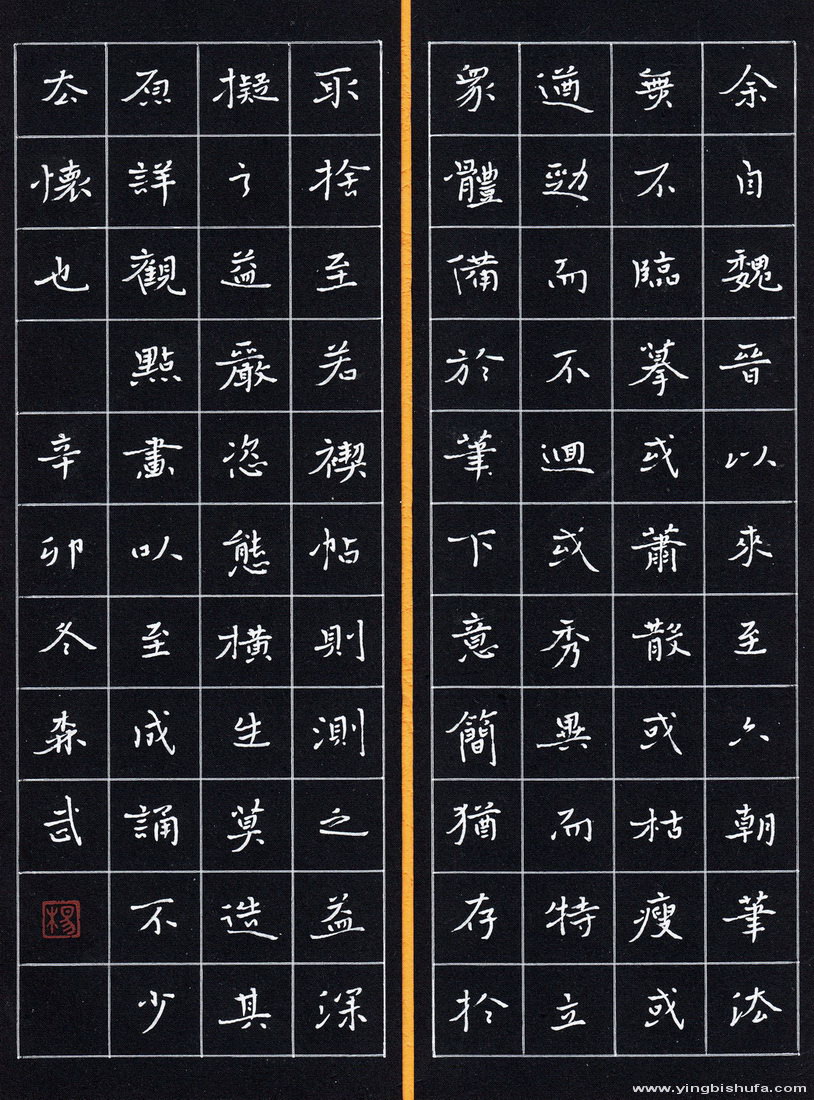 余自魏晉以來至六朝筆法
無不臨摹或蕭散或枯瘦或
遒勁而不迴或秀異而特立
眾體備於筆下意簡猶存於
取捨至若禊帖則測之益深
擬之益嚴恣態橫生莫造其
原詳觀點畫以至成誦不少
去懷也 辛卯冬森武
楊
www.yingbishufa.com